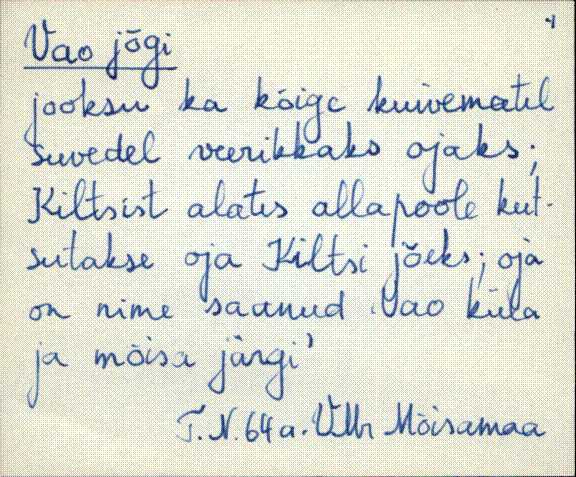 Vao jõgi
jooksu ka kõige kuivematel
suvedel veerikkaks ojaks;
Kiltsist alates allapoole kut-
sutakse oja Kiltsi jõeks; oja
on nime saanud Vao küla
ja mõisa järgi'
T. N. 64 a. VMr Mõisamaa